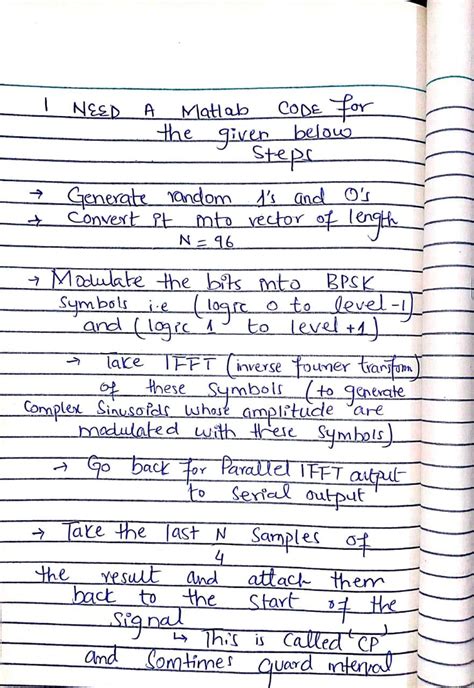 I NEED A Matlab CODE for
the given below
Steps
→ Generate random 1's and 0's
→ Convert it into vector of length
N = 96
→ Modulate the bits into BPSK
Symbols i.e (logic 0 to level -1)
and (logic 1 to level +1)
→ Take IFFT (inverse fourier transform)
of these symbols (to generate
Complex Sinusoids whose amplitude are
modulated with these symbols)
→ Go back for Parallel IFFT output
to serial output
→ Take the last N/4 Samples of
the result and attach them
back to the start of the
signal
↳ This is called 'CP'
and Somtimes guard interval